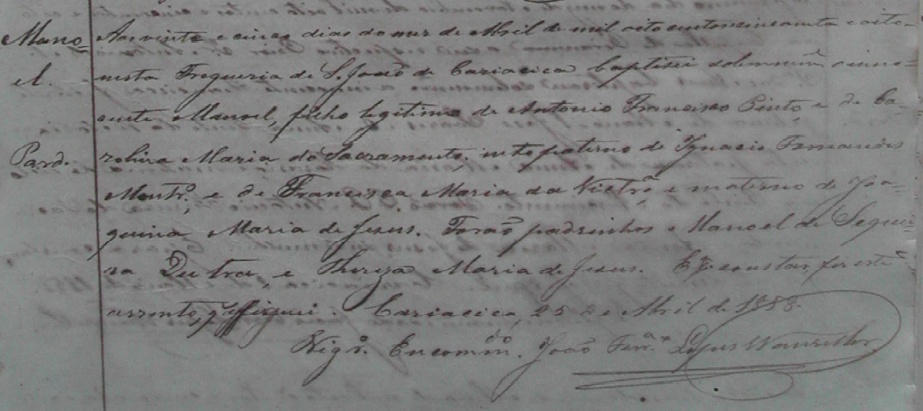 Mano=
el.
Pard.
Aos vinte e cinco dias do mez de Abril de mil oito centos cincoenta e oito
nesta Freguezia de S. João de Cariacica baptisei solemnem.e o inno-
cente Manoel, filho legitimo de Antonio Francisco Pinto, e de Ca-
rolina Maria do Sacramento; neto paterno de Ignacio Fernandes
e de Francisca Maria da Victr.a e materno de Joa-
quina Maria de Jesus. Forão padrinhos = Manoel de Sequei-
ra Dutra, e Thereza Maria de Jesus. E p.a constar, fiz este
assento, q' assignei. Cariacica, 25 de Abril de 1858.
Vigr.o Encommd.do João Ferr.a Lopes Wanzeller.